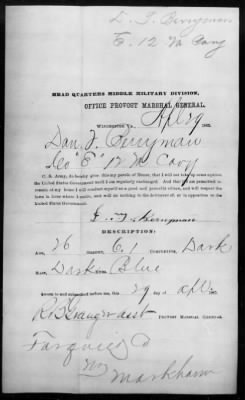 D. T. Berryman
E. 12 Va Cavy
HEAD QUARTERS MIDDLE MILITARY DIVISION,
OFFICE PROVOST MARSHAL GENERAL,
WINCHESTER VA. Apl 29 1865.
Dan. T. Berryman
Co "E" 12 Va Cavy
C. S. Army, do hereby give this my parole of Honor, that I will not take up arms against
the United States Government until I am regularly exchanged. And that if I am permitted to
remain at my home I will conduct myself as a good and peaceable citizen, and will respect the
laws in force where I reside, and will do nothing to the detriment of, or in opposition to the
United States Government.
D. T. Berryman
DESCRIPTION:
AGE, 26 HEIGHT, 6.1 COMPLEXION, Dark
HAIR, Dark EYES, Blue
Sworn to and subscribed before me, this 29 day of Apl 1865.
asst PROVOST MARSHAL GENERAL.
Fauquier Co
Markham